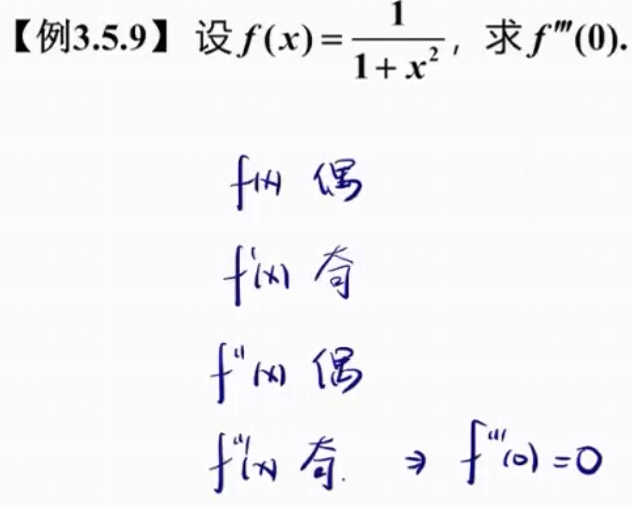 【例3.5.9】 设 f(x) = 1/(1 + x²), 求 f'''(0).
f(x) 偶
f'(x) 奇
f''(x) 偶
f'''(x) 奇. ⇒ f'''(0) = 0